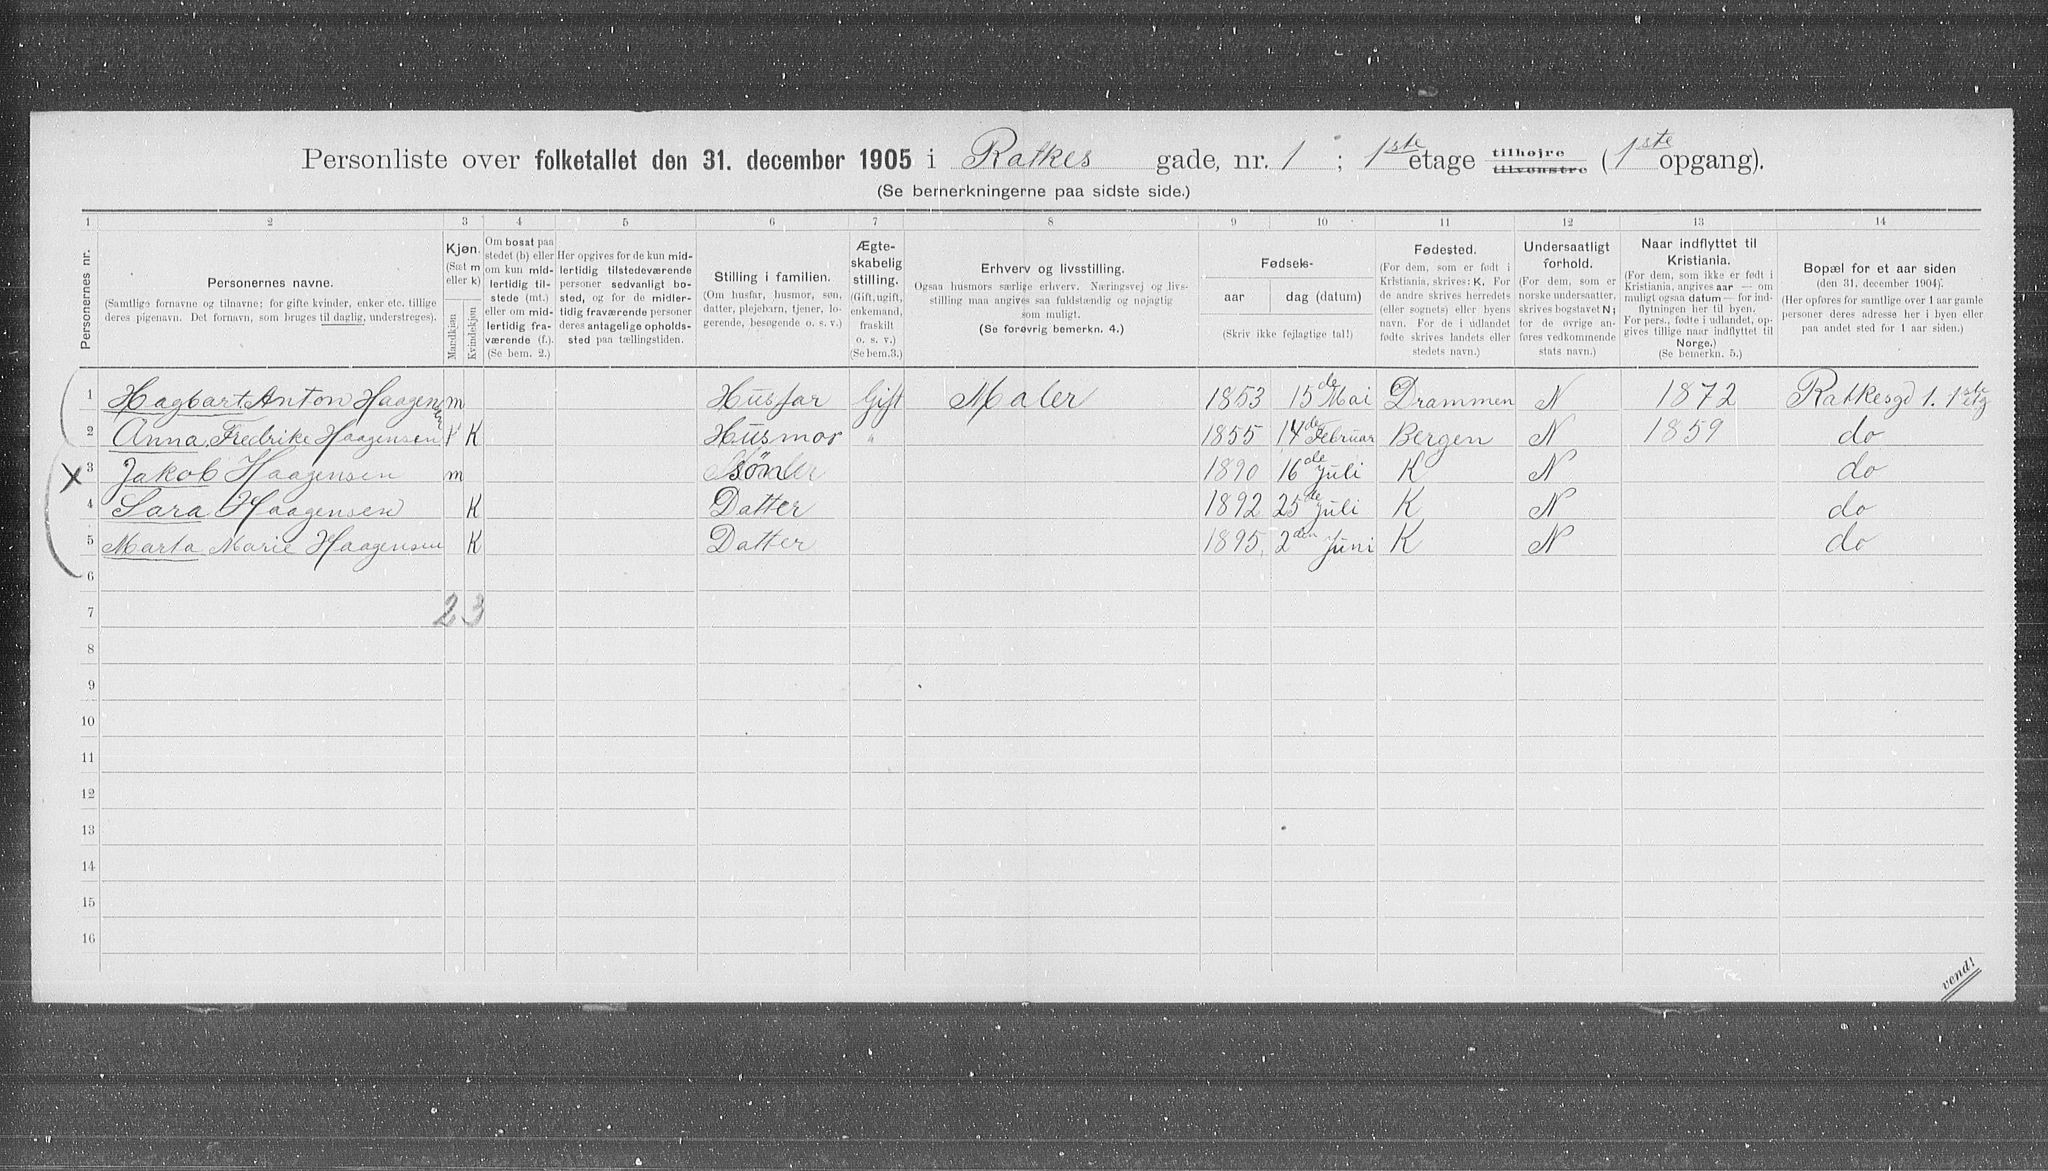 Personliste over folketallet den 31. december 1905 i Ratkes gade, nr. 1 ; 1ste etage tilhøjre tilvenstre (1ste opgang).
(Se bemerkningerne paa sidste side.)
1 2 3 4 5 6 7 8 9 10 11 12 13 14
Personernes nr.
Personernes navne.
(Samtlige fornavne og tilnavne; for gifte kvinder, enker etc. tillige
deres pigenavn. Det fornavn, som bruges til daglig, understreges).
Kjøn.
(Sæt m
eller k)
Mandkjøn
Kvindekjøn.
Om bosat paa
stedet (b) eller
om kun mid-
lertidig til-
stede (mt.)
eller om mid-
lertidig fra-
værende (f.).
(Se bem. 2.)
Her opgives for de kun mid-
lertidig tilstedeværende
personer sedvanligt bo-
sted, og for de midler-
tidig fraværende personer
deres antagelige opholds-
sted paa tællingstiden.
Stilling i familien.
(Om husfar, husmor, søn,
datter, plejebarn, tjener, lo-
gerende, besøgende o. s. v.)
Ægte-
skabelig
stilling.
(Gift, ugift,
enkemand,
fraskilt
o. s. v.)
(Se bem.3.)
Erhverv og livsstilling.
Ogsaa husmors særlige erhverv. Næringsvej og livs-
stilling maa angives saa fuldstændig og nøjagtig
som muligt.
(Se forøvrig bemerkn. 4.)
Fødsels-
aar dag (datum)
(Skriv ikke fejlagtige tal!)
Fødested.
(For dem, som er født i
Kristiania, skrives: K. For
de andre skrives herredets
(eller sognets) eller byens
navn. For de i udlandet
fødte skrives landets eller
stedets navn.)
Undersaatligt
forhold.
(For dem, som er
norske undersaatter,
skrives bogstavet N;
for de øvrige an-
føres vedkommende
stats navn.)
Naar indflyttet til
Kristiania.
(For dem, som ikke er født i
Kristiania, angives aar — om
muligt ogsaa datum — for ind-
flytningen her til byen.
For pers., fødte i udlandet, op-
gives tillige naar indflyttet til
Norge.)
(Se bemerkn. 5.)
Bopæl for et aar siden
(den 31. december 1904).
(Her opføres for samtlige over 1 aar gamle
personer deres adresse her i byen eller
paa andet sted for 1 aar siden.)
1 Hagbart Anton Haagensen m Husfar Gift Maler 1853 15de Mai Drammen N 1872 Ratkesgd 1. 1ste etg
2 Anna Fredrike Haagensen K Husmor " 1855 14de Februar Bergen N 1859 do
3 Jakob Haagensen m Søn 1890 16de Juli K N do
4 Sara Haagensen K Datter 1892 25de Juli K N do
5 Marta Marie Haagensen K Datter 1895. 2den Juni K N do
6
7 2 3
8
9
10
11
12
13
14
15
16
vend!